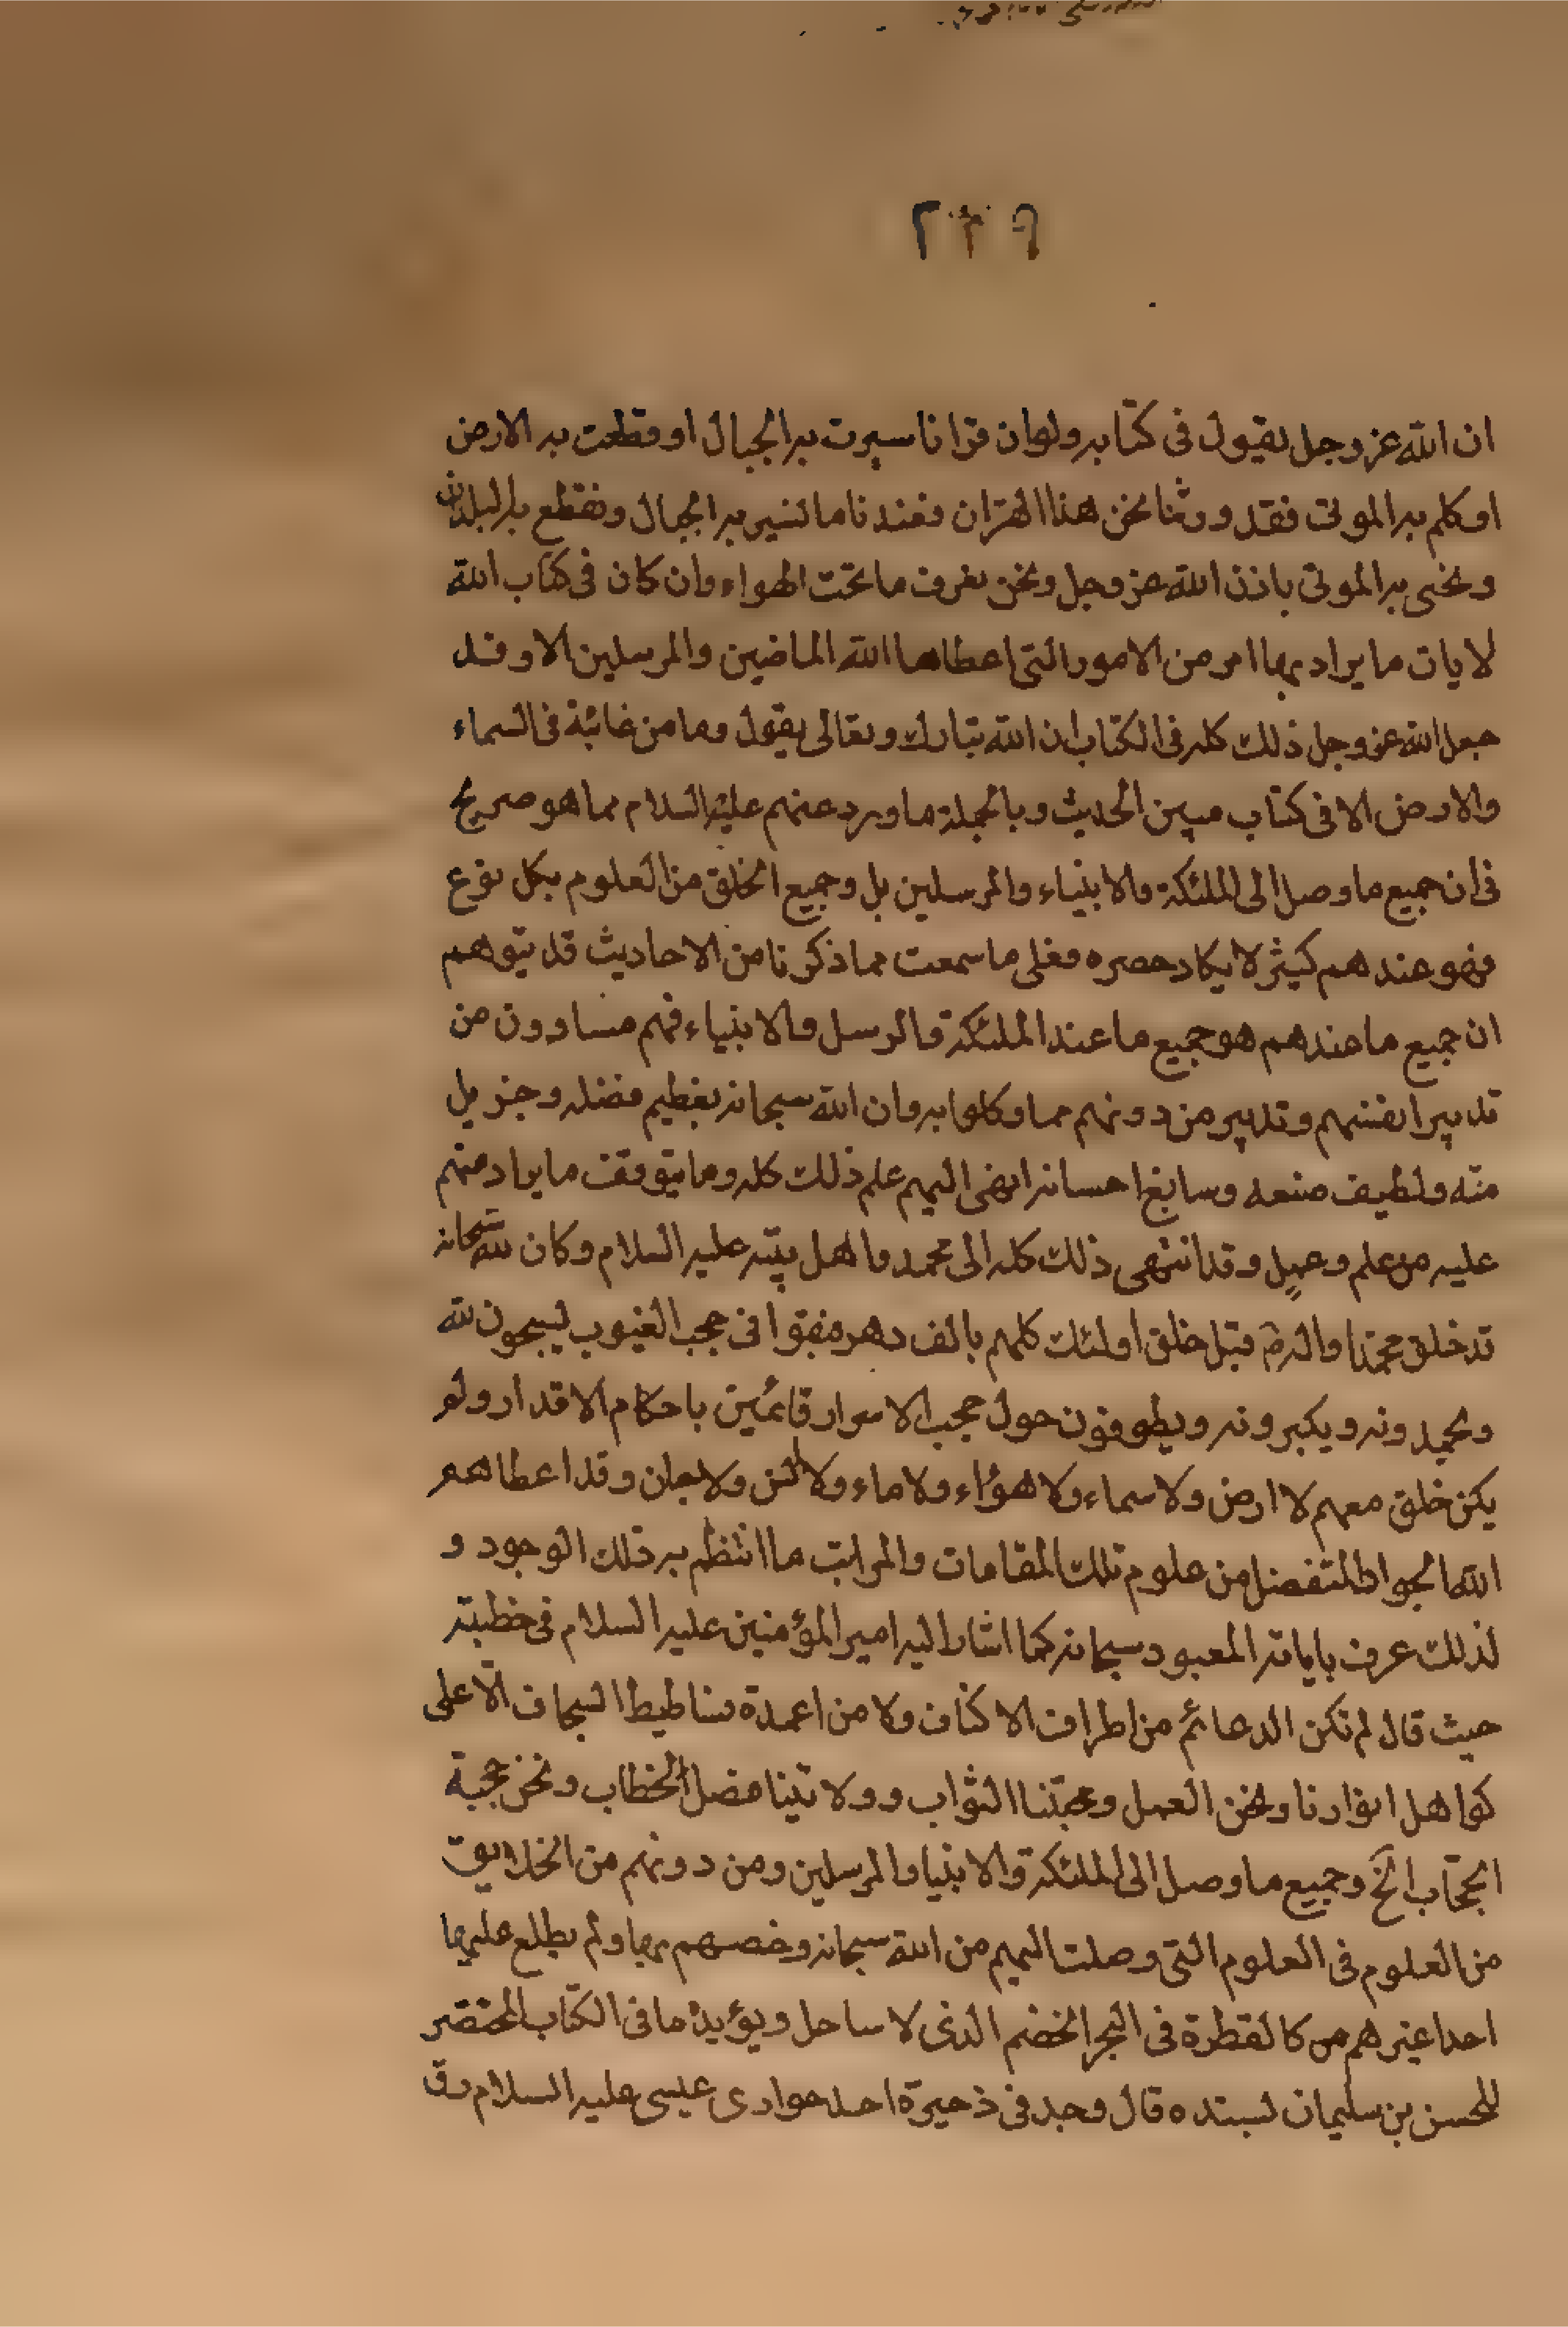 ٢٢٩
ان الله عز وجل يقول فى كتابه ولو ان قرانا سيرت به الجبال او قطعت به الارض
او كلم به الموتى فقد ورثنا نحن هذا القران فعندنا ما تسير به الجبال وتقطع به البلدان
ونحيى به الموتى باذن الله عز وجل ونحن نعرف ما تحت الهواء وان كان فى كتاب الله
لايات ما يراد بها امر من الامور التى اعطاها الله الماضين والمرسلين الا وقد
جعل الله عز وجل ذلك كله فى الكتاب ان الله تبارك وتعالى يقول وما من غائبة فى السماء
والارض الا فى كتاب مبين الحديث وبالجملة ما ورد عنهم عليهم السلام مما هو صريح
فى ان جميع ما وصل الى الملئكة والانبياء والمرسلين بل وجميع الخلق من العلوم بكل نوع
فهو عندهم كثير لا يكاد حصره فعلى ما سمعت مما ذكرنا من الاحاديث قد يتوهم
ان جميع ما عندهم هو جميع ما عند الملئكة والرسل والانبياء فهم متساوون من
تدبير انفسهم وتدبير من دونهم مما وكلوا به وان الله سبحانه بعظيم فضله وجزيل
منه ولطيف صنعه وسابغ احسانه انهى اليهم علم ذلك كله وما يتوقف ما يراد منهم
عليه من علم وعمل وقد انتهى ذلك كله الى محمد واهل بيته عليه السلام وكان الله سبحانه
قد خلق محمدا واله قبل خلق اولئك كلهم بالف دهر فبقوا فى حجب الغيوب يسبحون لله
ويحمدونه ويكبرونه ويطوفون حول حجب الاسرار قائمين باحكام الاقدار ولو
يكن خلق معهم لا ارض ولا سماء ولا هواء ولا ماء ولا انس ولا جان وقد اعطاهم
الله الجواد المتفضل من علوم تلك المقامات والمراتب ما انتظم به ذلك الوجود و
لذلك عرف باياته المعبود سبحانه كما اشار اليه امير المؤمنين عليه السلام فى خطبته
حيث قال لم تكن الدعائم من اطراف الاكناف ولا من اعمدة فساطيط السجاف الا على
كواهل انوارنا ونحن العمل ومحبتنا الثواب وولايتنا فصل الخطاب ونحن حجبة
الحجاب الخ وجميع ما وصل الى الملئكة والانبيا والمرسلين ومن دونهم من الخلايق
من العلوم فى العلوم التى وصلت اليهم من الله سبحانه وخصهم بها ولم يطلع عليها
احدا غيرهم من كالقطرة فى البحر الخضم الذى لا ساحل ويؤيد ما فى الكتاب المختصر
للحسن بن سليمان بسنده قال وجد فى ذخيرة احد حوارى عيسى عليه السلام رق